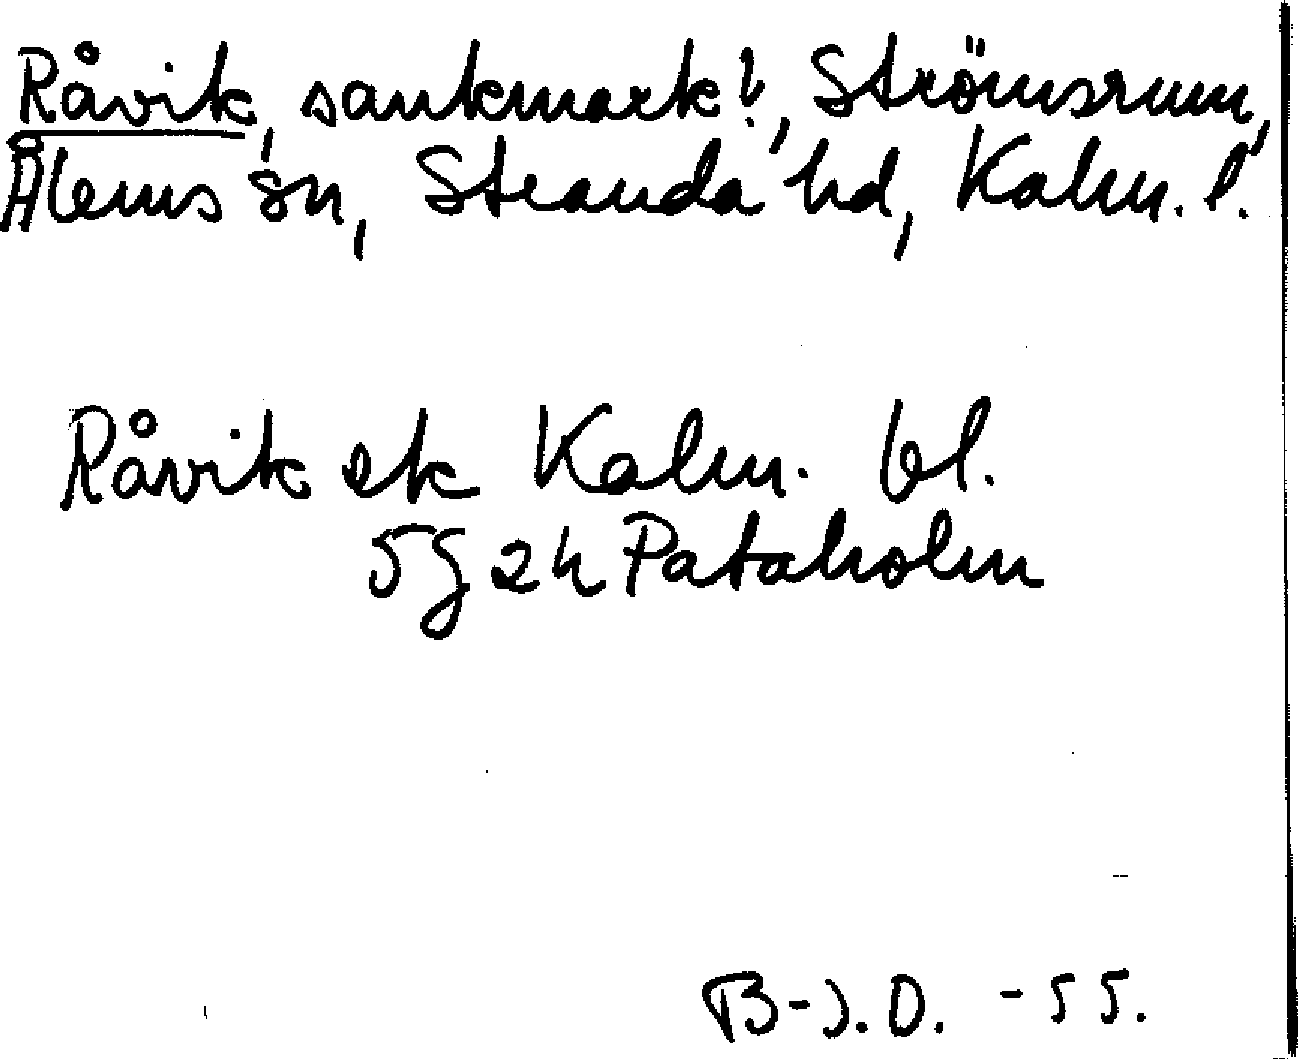 Råvik, sankmark?, Strömsrum,
Ålems sn, Stranda hd, Kalm. l.
Råvik ek Kalm. bl.
5g 2h Pataholm
B-J.O. -55.